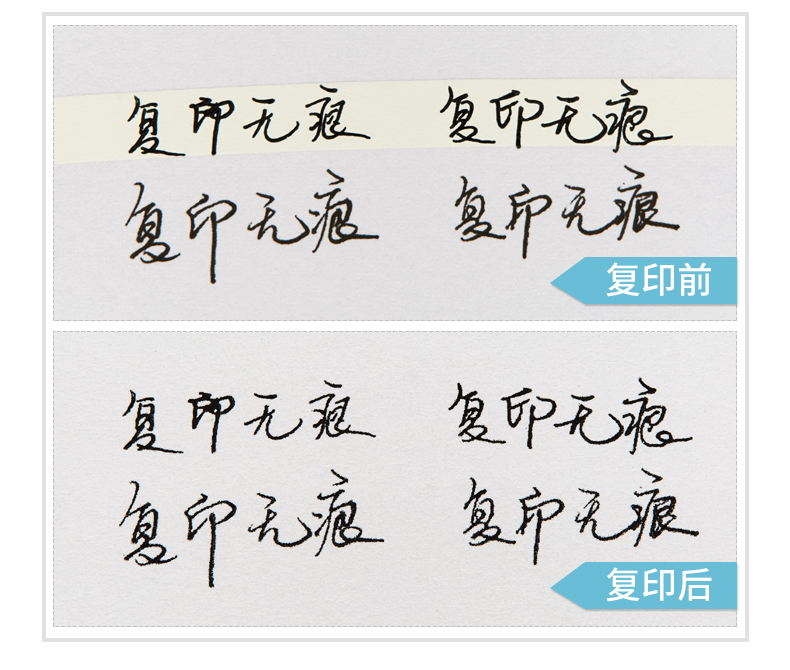 复印无痕 复印无痕
复印无痕 复印无痕
复印前
复印无痕 复印无痕
复印无痕 复印无痕
复印后